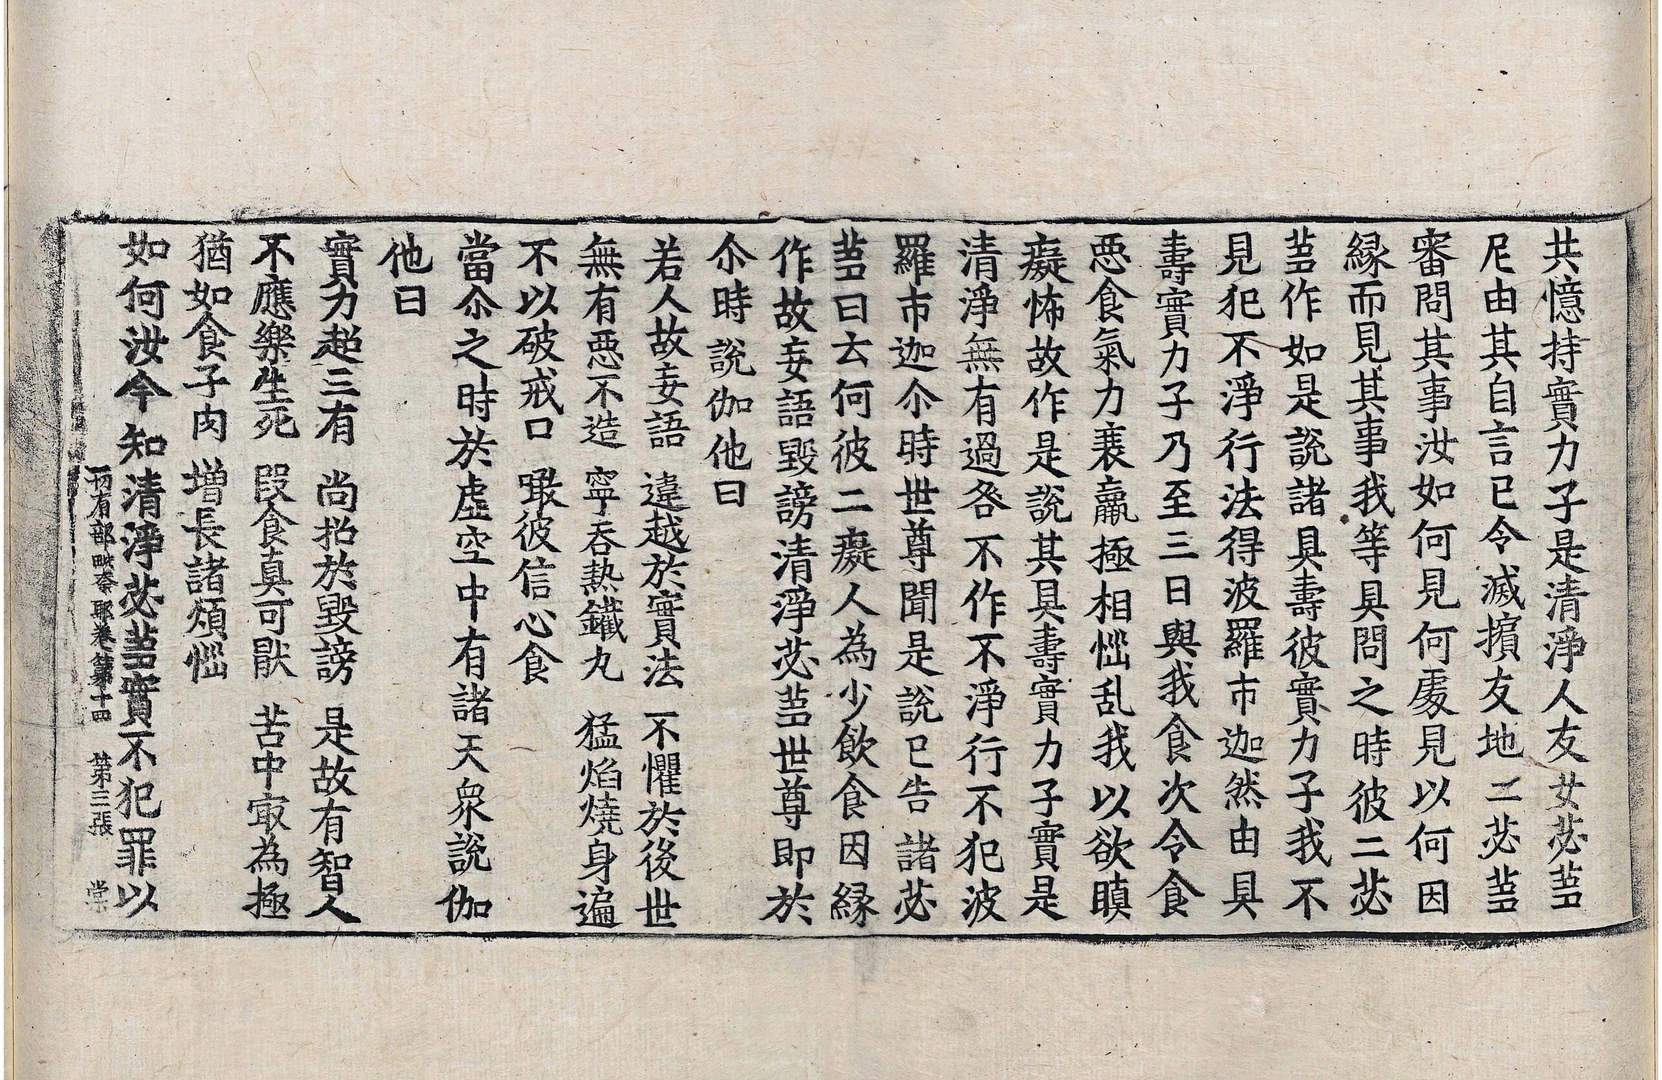 共憶持實力子是清淨人友女苾芻
尼由其自言已令滅擯友地二苾芻
審問其事汝如何見何處見以何因
縁而見其事我等具問之時彼二苾
芻作如是說諸具壽彼實力子我不
見犯不淨行法得波羅市迦然由具
壽實力子乃至三日與我食次令食
悪食氣力衰羸極相惱乱我以欲瞋
癡怖故作是說其具壽實力子實是
清淨無有過咎不作不淨行不犯波
羅市迦尒時世尊聞是說已告諸苾
芻曰云何彼二癡人為少飲食因縁
作故妄語毀謗清淨苾芻世尊即於
尒時說伽他曰
若人故妄語 違越於實法 不懼於後世
無有悪不造 寧吞熱鐵丸 猛焰燒身遍
不以破戒口 噉彼信心食
當尒之時於虛空中有諸天衆說伽
他曰
實力超三有 尚招於毀謗 是故有智人
不應樂生死 段食真可猒 苦中冣為極
猶如食子肉 增長諸煩惱
如何汝今知清淨苾芻實不犯罪以
有部毗奈耶卷第十四 第三張 棠